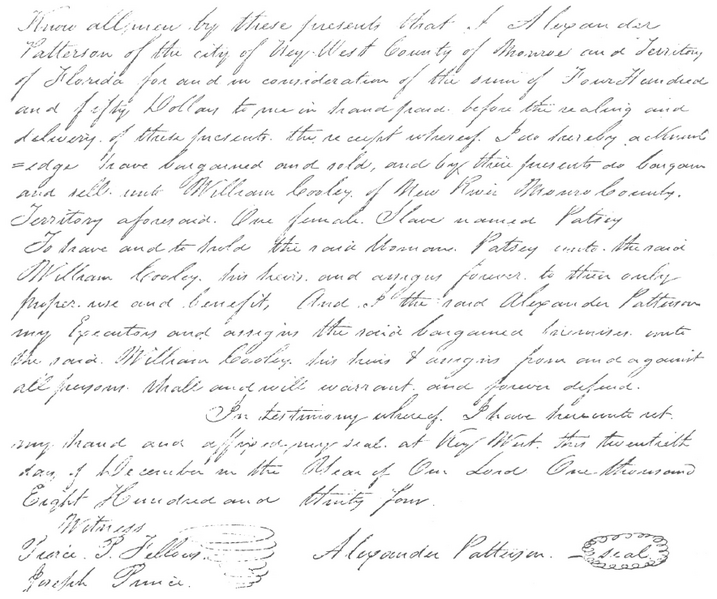 Know all men by these presents that I Alexander
Patterson of the city of Key-West County of Monroe and Territory
of Florida for and in consideration of the sum of Four Hundred
and fifty Dollars to me in hand paid before the sealing and
delivery of these presents the receipt whereof I do hereby acknowl
=edge have bargained and sold, and by these presents do bargain
and sell unto William Cooley of New River Monroe County.
Territory aforesaid. One female Slave named Patsey
To have and to hold the said Woman Patsey unto the said
William Cooley his heirs and assigns forever to their only
proper use and benefit, And I the said Alexander Patterson
my Executors and assigns the said bargained premises unto
the said William Cooley his heirs & assigns from and against
all persons shall and will warrant and forever defend.
In testimony whereof I have hereunto set
my hand and affixed my seal at Key West this twentieth
day of December in the Year of Our Lord One thousand
Eight Hundred and thirty four.
Witness
Pierce P. Fellows. Alexander Patterson. - seal
Joseph Prince.